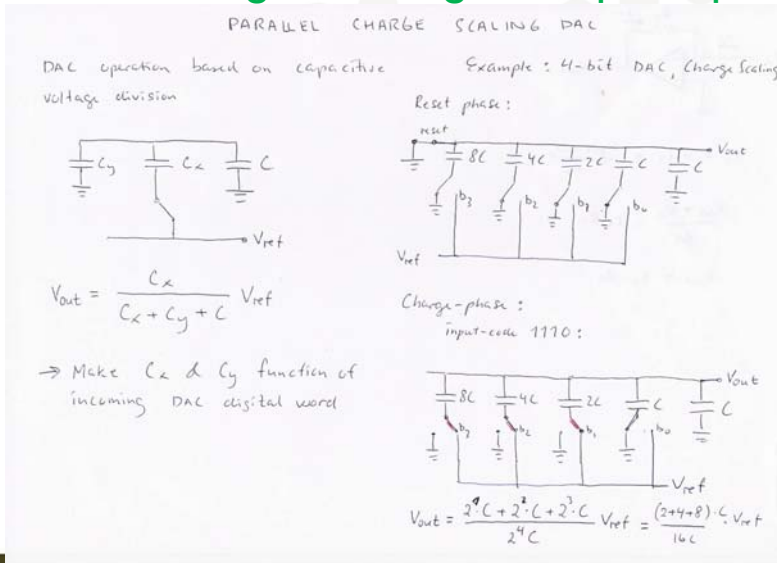 PARALLEL CHARGE SCALING DAC
DAC operation based on capacitive
voltage division
Cy
Cx
C
Vref
Vout = Cx / (Cx + Cy + C) Vref
→ Make Cx & Cy function of
incoming DAC digital word
Example : 4-bit DAC, Charge Scaling
Reset phase :
reset
8C 4C 2C C C Vout
b3 b2 b1 b0
Vref
Charge-phase :
input-code 1110 :
Vout
8C 4C 2C C C
b3 b2 b1 b0
Vref
Vout = (2^1·C + 2^2·C + 2^3·C) / 2^4C Vref = (2+4+8)·C / 16C · Vref